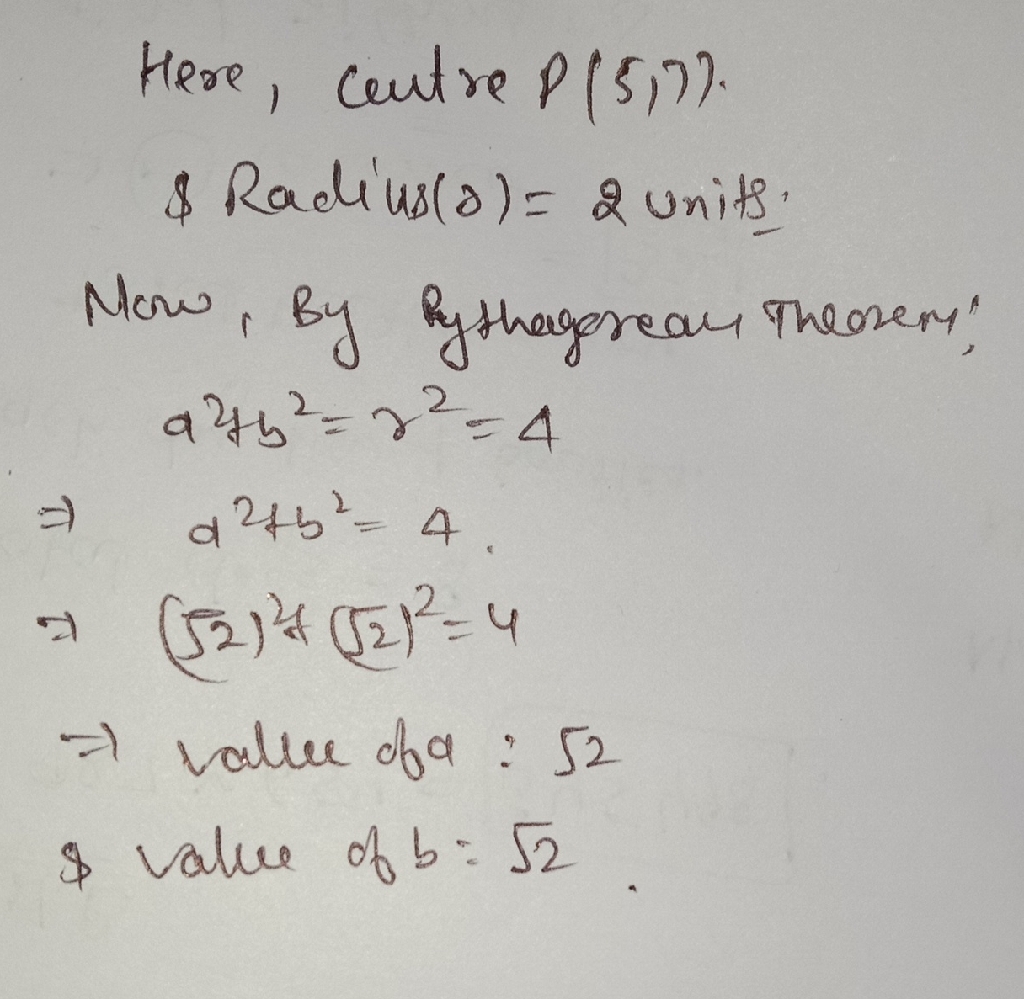 Here, Centre P(5,7).
& Radius(r) = 2 units.
Now, By Pythagorean Theorem;
a²+b² = r² = 4
⇒ a²+b² = 4.
⇒ (√2)²+(√2)² = 4
⇒ value of a : √2
& value of b = √2.